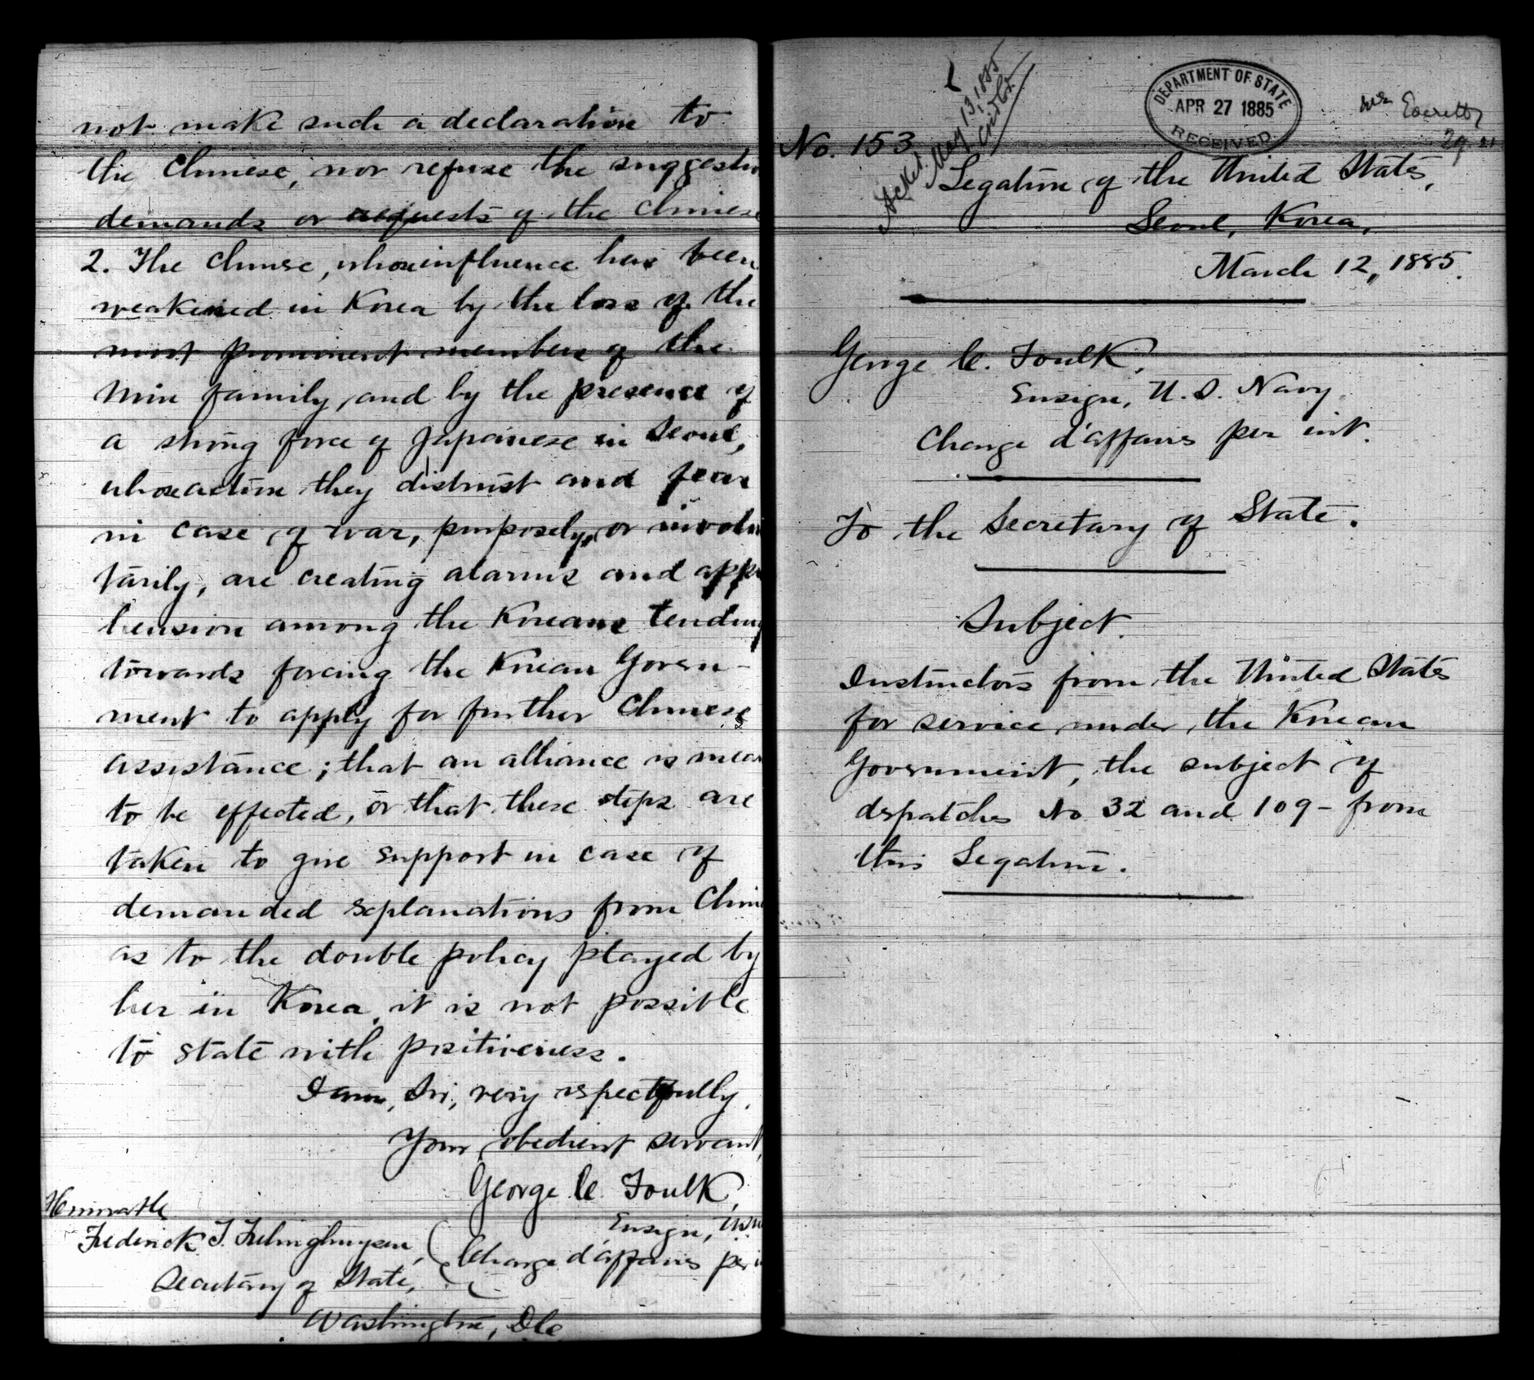 not make such a declaration to
the Chinese, nor refuse the suggestio
demands or requests of the Chinese
2. The Chinese, whose influence has been
weakened in Korea by the loss of the
most prominent members of the
Min family, and by the presence of
a strong force of Japanese in Seoul,
whose action they distrust and fear
in case of war, purposely, or involu
tarily, are creating alarms and appr
hension among the Koreans tending
towards forcing the Korean Govern-
ment to apply for further Chinese
assistance; that an alliance is mea
to be effected, or that these steps are
taken to give support in case of
demanded explanations from Chin
as to the double policy played by
her in Korea, it is not possible
to state with positiveness.
I am, Sir, very respectfully,
Your obedient servant,
George C. Foulk,
Ensign, U.S.N
Charge d'affaires per i
Honorable
Frederick T. Frelinghuysen,
Secretary of State,
Washington, D.C.
DEPARTMENT OF STATE
APR 27 1885
RECEIVED
Mr Everett
29
Ackd May 13, 1885
No. 153
Legation of the United States,
Seoul, Korea,
March 12, 1885.
George C. Foulk,
Ensign, U.S. Navy
Charge d'affaires per int.
To the Secretary of State.
Subject.
Instructors from the United States
for service under the Korean
Government, the subject of
dispatches No 32 and 109 - from
this Legation.